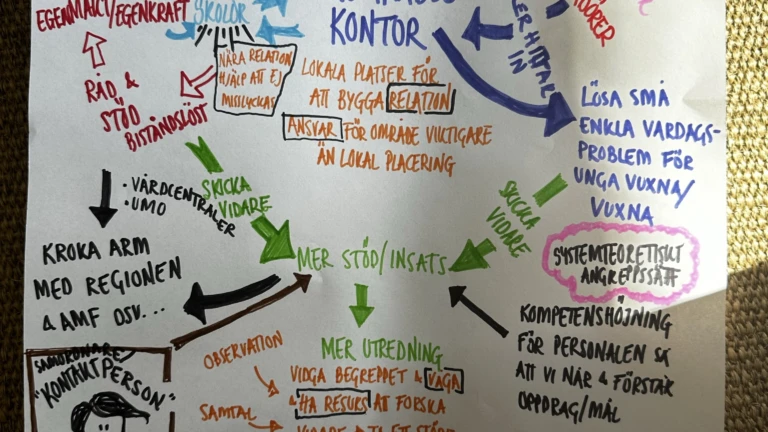 EGENMAKT/EGENKRAFT
SKOLOR
KONTOR
HITTAR
IN
NÄRA RELATION
HJÄLP ATT EJ
MISSLYCKAS
LOKALA PLATSER FÖR
ATT BYGGA RELATION
ANSVAR FÖR OMRÅDE VIKTIGARE
ÄN LOKAL PLACERING
RÅD &
STÖD
BISTÅNDSLÖST
LÖSA SMÅ
ENKLA VARDAGS-
PROBLEM FÖR
UNGA VUXNA/
VUXNA
SKICKA
VIDARE
SKICKA
VIDARE
· VÅRDCENTRALER
· UMO
KROKA ARM
MED REGIONEN
& AMF OSV...
MER STÖD/INSATS
SYSTEMTEORETISKT
ANGREPPSSÄTT
KOMPETENSHÖJNING
FÖR PERSONALEN SÅ
ATT VI NÅR & FÖRSTÅR
UPPDRAG/MÅL
MER UTREDNING
VIDGA BEGREPPET & VÅGA
& HA RESURS AT FORSKA
OBSERVATION
SAMTAL
SAMORDNARE
"KONTAKTPERSON"